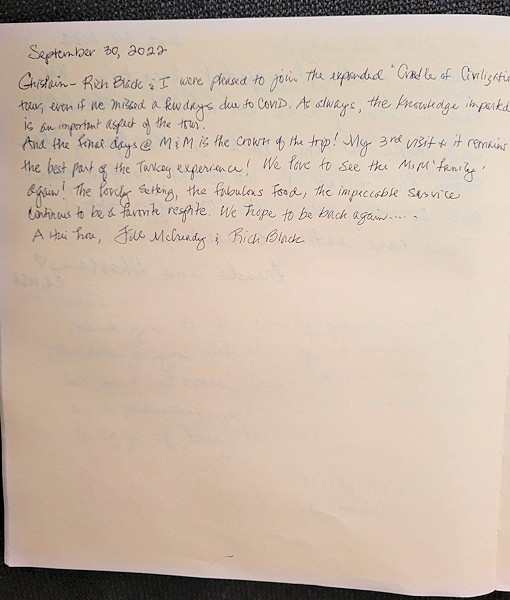 September 30, 2022
Ghislain - Rich Black & I were pleased to join the expanded "Cradle of Civilizatio
tour, even if we missed a few days due to COVID. As always, the knowledge imparted
is an important aspect of the tour.
And the final days @ M&M is the crown of the trip! My 3rd visit & it remains
the best part of the Turkey experience! We love to see the M&M 'family'
again! The lovely setting, the fabulous food, the impeccable service
continues to be a favorite respite. We hope to be back again.....
A Hui hou, Jill McGready & Rich Black